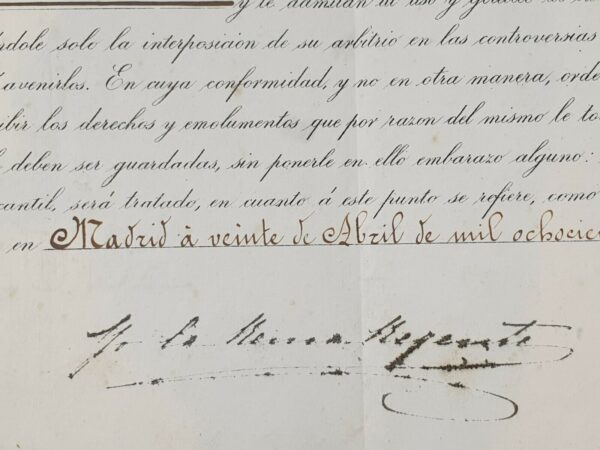 y le admitan al uso y
ndole solo la interposicion de su arbitrio en las controversias
avenirlos. En cuya conformidad, y no en otra manera, orde
ibir los derechos y emolumentos que por razon del mismo le to
deben ser guardadas, sin ponerle en ello embarazo alguno:
cantil, será tratado, en cuanto á este punto se refiere, como
en Madrid á veinte de Abril de mil ochocie
Yo la Reina Regente